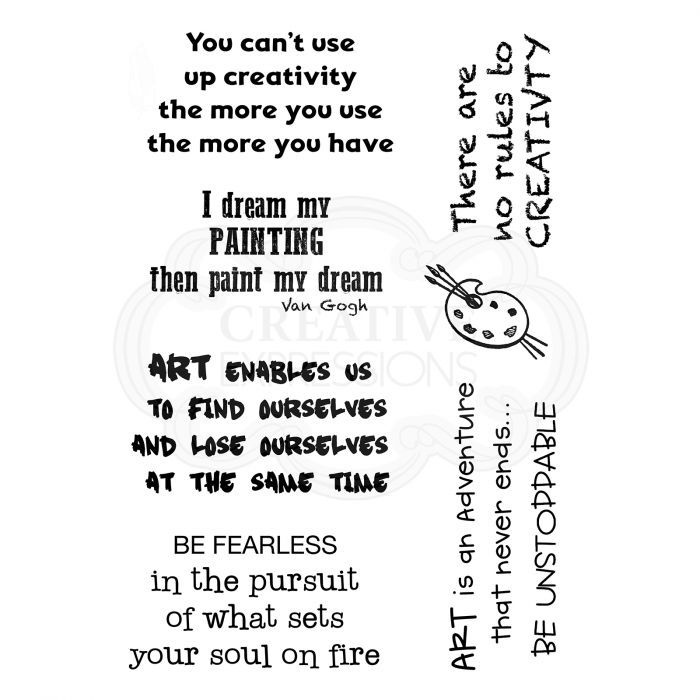 You can't use
up creativity
the more you use
the more you have
I dream my
PAINTING
then paint my dream
Van Gogh
ART ENABLES US
TO FIND OURSELVES
AND LOSE OURSELVES
AT THE SAME TIME
BE FEARLESS
in the pursuit
of what sets
your soul on fire
There are
no rules to
CREATIVTY
ART is an Adventure
that never ends...
BE UNSTOPPABLE
CREATIVE
EXPRESSIONS